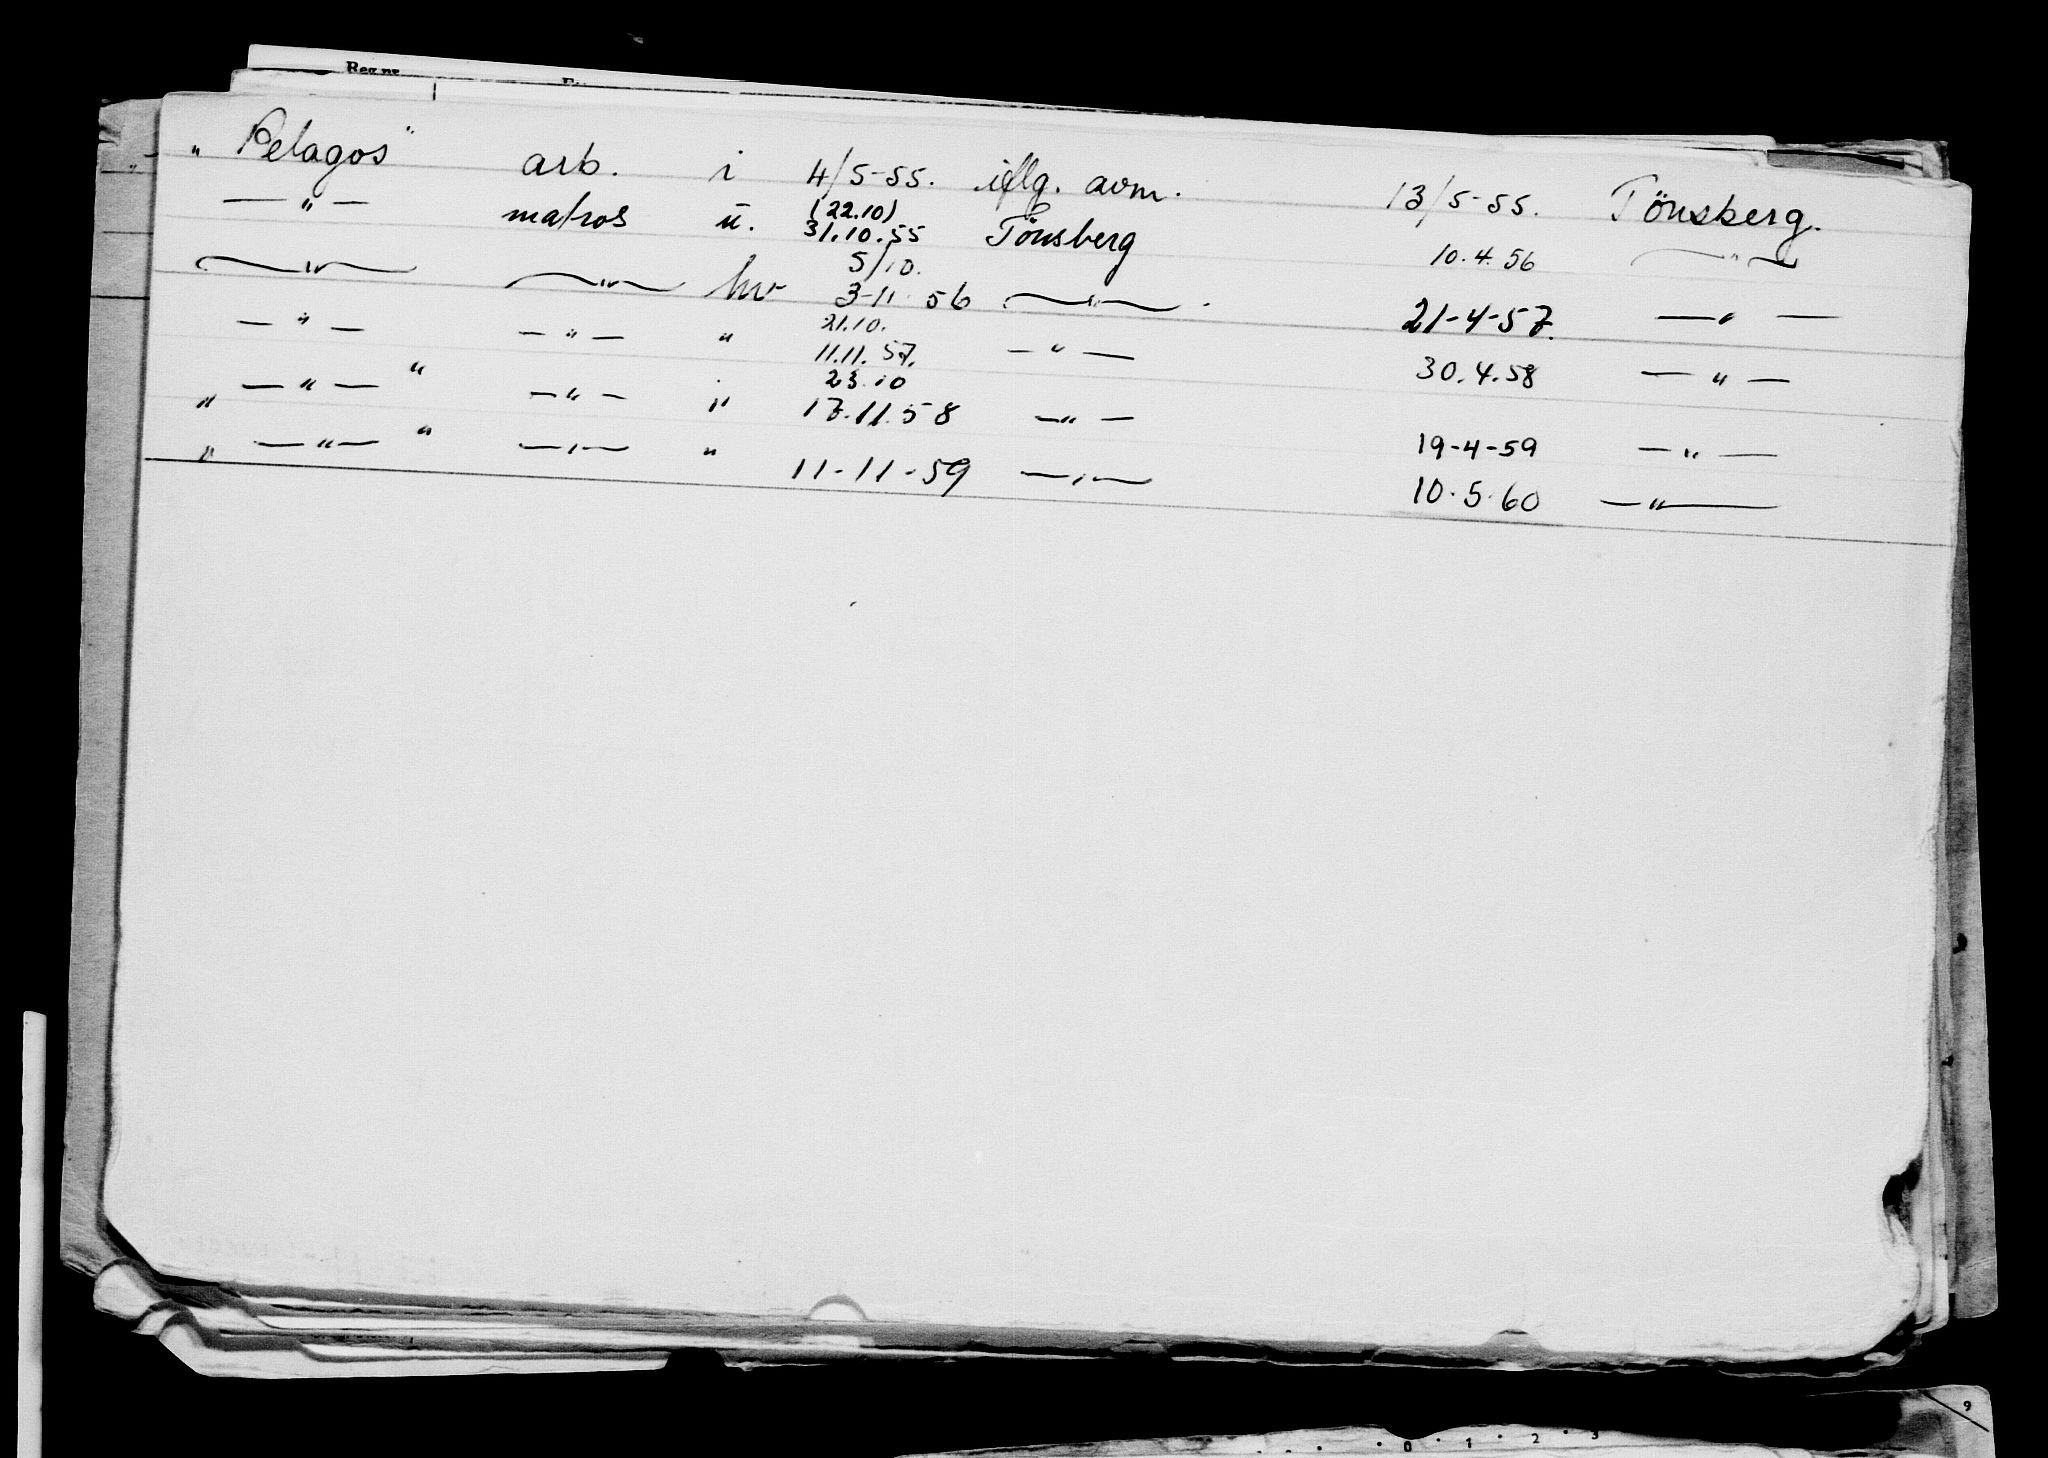 „ Pelagos" arb. i 4/5-55. iflg. avm. 13/5-55. Tönsberg.
— " — matros u. (22.10) 31.10.55 Tönsberg 10.4.56 — " —
— " — — " — hv 5/10. 3-11-56 — " — . 21-4-57. — " —
— " — — " — " 21.10. 11.11.57. — " — 30.4.58 — " —
„ — " — " — " — " 23.10 17.11.58 — " — 19-4-59 — " —
„ — " — " — " — " 11-11-59 — " — 10.5.60 — " —
9
0 · 1 · 2 · 3